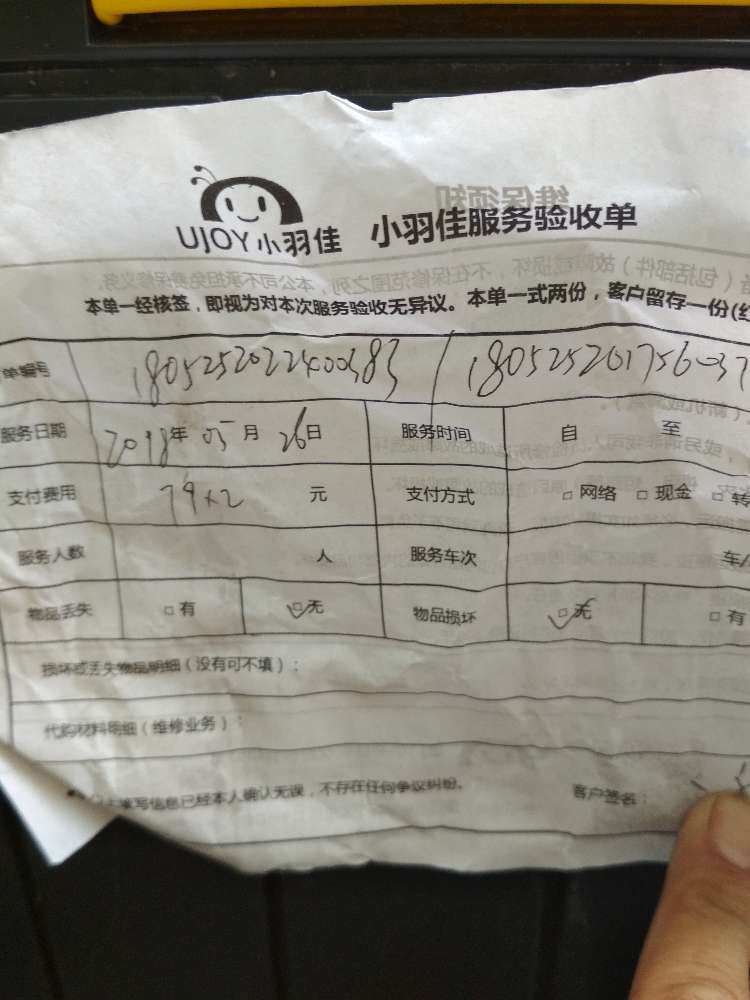 UJOY小羽佳 小羽佳服务验收单
本单一经核签，即视为对本次服务验收无异议。本单一式两份，客户留存一份(红
单编号 1805252022400383 / 18052520175603
服务日期 2018年 05月 26日 服务时间 自 至
支付费用 79×2 元 支付方式 □网络 □现金 □转
服务人数 人 服务车次 车/
物品丢失 □有 □无 物品损坏 □无 □有
损坏或丢失物品明细（没有可不填）：
代购材料明细（维修业务）：
填写信息已经本人确认无误，不存在任何争议纠纷。 客户签名：